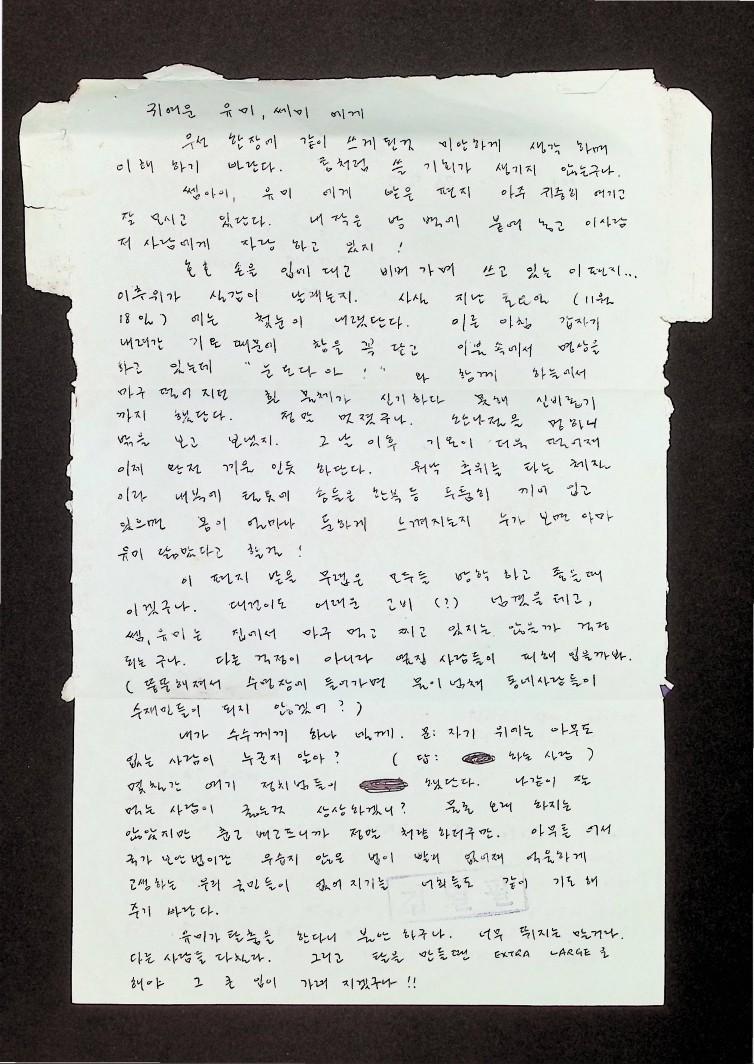 귀여운 유미, 쎄미 에게
우선 한장에 같이 쓰게 된것 미안하게 생각 하며
이해 하기 바란다. 좀처럼 쓸 기회가 생기지 않는구나.
쎔아이, 유미 에게 받은 편지 아주 귀중히 여기고
잘 모시고 있단다. 내 작은 방 벽에 붙여 놓고 이사람
저 사람에게 자랑 하고 있지 !
호호 손을 입에 대고 비벼 가며 쓰고 있는 이 편지...
이추위가 실감이 날레는지. 사실 지난 토요일 (11월
18일) 에는 첫눈이 내렸단다. 이른 아침 갑자기
내려간 기온 때문에 창을 꼭 닫고 이불 속에서 명상을
하고 있는데 "눈 온다 아 !" 와 함께 하늘에서
마구 떨어 지던 흰 물체가 신기하다 못해 신비롭기
까지 했단다. 정말 멋졌구나. 한나절을 멍하니
밖을 보고 보냈지. 그 날 이후 기온이 더욱 떨어져
이제 완전 겨울 인듯 하단다. 워낙 추위를 타는 체질
이라 내복에 털옷에 솜들은 한복 등 두툼히 끼어 입고
있으면 몸이 얼마나 둔하게 느껴지는지 누가 보면 아마
유미 닮았다고 할걸 !
이 편지 받을 무렵은 모두들 방학 하고 좋을때
이겠구나. 대건이도 어려운 고비 (?) 넘겼을 테고,
쎔, 유미는 집에서 마구 먹고 찌고 있지는 않을까 걱정
되는 구나. 다른 걱정이 아니라 옆집 사람들이 피해 입을까봐.
( 뚱뚱해져서 수영장에 들어가면 물이 넘쳐 동네사람들이
수재민들이 되지 않겠어 ? )
내가 수수께끼 하나 낼께. 문: 자기 위에는 아무도
없는 사람이 누군지 알아 ? ( 답: 하는 사람 )
몇칠간 여기 정치범들이 했단다. 나같이 잘
먹는 사람이 굶는것 상상하겠니? 물론 오래 하지는
않았지만 춥고 배고프니까 정말 처량 하더구만. 아무튼 어서
국가 보안법이란 우습지 않은 법이 빨리 없어져 억울하게
고생하는 우리 국민들이 없어 지기를 너희들도 같이 기도 해
주기 바란다.
유미가 탈춤을 한다니 불안 하구나. 너무 뛰지는 말거라.
다른 사람들 다칠라. 그리고 탈을 만들땐 EXTRA LARGE 로
해야 그 큰 입이 가려 지겠구나 !!